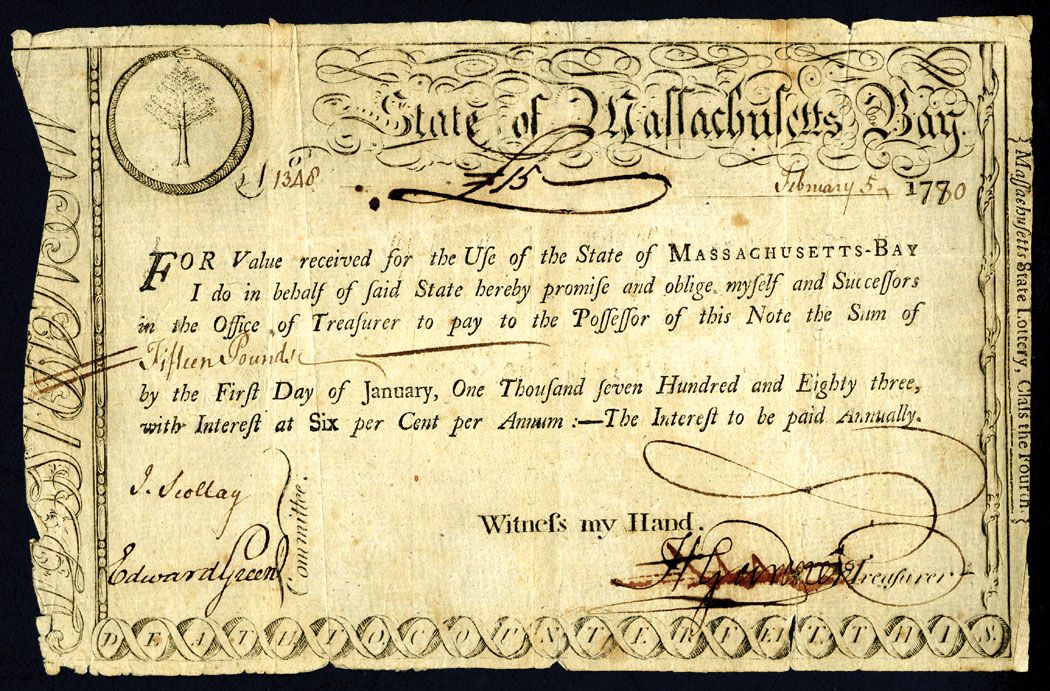 State of Maſſachuſetts Bay.
No 1348
£15
February 5 1780
FOR Value received for the Uſe of the State of MASSACHUSETTS-BAY
I do in behalf of ſaid State hereby promiſe and oblige myſelf and Succeſſors
in the Office of Treaſurer to pay to the Poſſeſſor of this Note the Sum of
Fifteen Pounds
by the Firſt Day of January, One Thouſand ſeven Hundred and Eighty three,
with Intereſt at Six per Cent per Annum :—The Intereſt to be paid Annually.
J. Scollay
Edward Green
Committee.
Witneſs my Hand.
H Gardner Treaſurer
DEATH TO COUNTERFEIT THIS.
Maſſachuſetts State Lottery, Claſs the Fourth